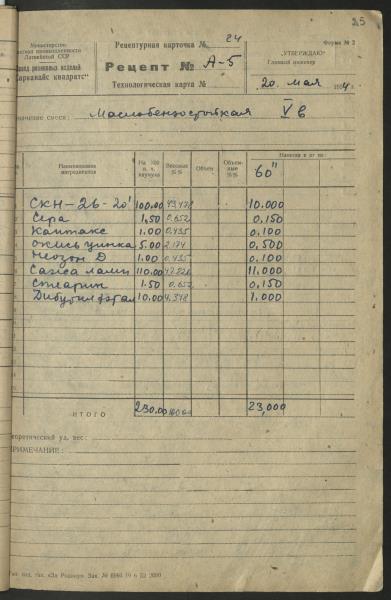 25
Министерство
Латвийской ССР
Завод резиновых изделий
"Сарканайс квадратс"
Рецептурная карточка № 24
Рецепт № А-5
Технологическая карта №
Форма № 2
"УТВЕРЖДАЮ"
Главный инженер
20. мая
Маслобензостойкая V в
Наименование ингредиентов
На 100 в. ч. каучука
Весовые %%
Объем
Объемные %%
Навески в кг на:
60"
СКН-26-20' 100.00 43,478 10.000
Сера 1,50 0,652 0,150
Каптакс 1.00 0,435 0,100
Окись цинка 5.00 2,174 0,500
Неозон Д 1.00 0,435 0,100
Сажа ламп 110.00 47,826 11,000
Стеарин 1.50 0,652 0,150
Дибутилфтал 10.00 4,348 1,000
ИТОГО 230.00 100.00 23,000
уд. вес:
ПРИМЕЧАНИЕ: